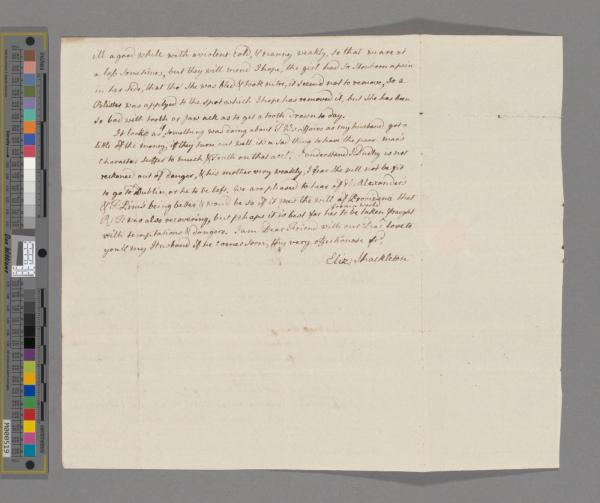 ill a good while with a violent cold, & nanny weakly, so that we are at
a loss sometimes, but they will mend I hope, the girl had so stouborn a pain
in her side, that tho' she was bled & took nitre, it seemed not to remove, so a
Blister was applyed to the spot which I hope has removed it, but she has been
so bad with tooth or jaw ack as to get a tooth drawn to day.
It looks as if something was doing about affairs as my husband got a
little of the money, if they turn out well it's a sad thing to have the poor man's
character suffer so much & truth on that acct. I understand is not
reckoned out of danger, & his mother very weakly, I fear she will not be fit
to go to Dublin, or he to be left, we are pleased to hear of Alexander
& being better & would be so if it was the will of Providence that
was also recovering, but phaps it is best for her to be taken from a world fraught
with temptations & dangers. I am Dear Friend with our Dear love to
you & my Husband if he comes soon, thy very affectionate fd
Eliz: Shackleton
M000519